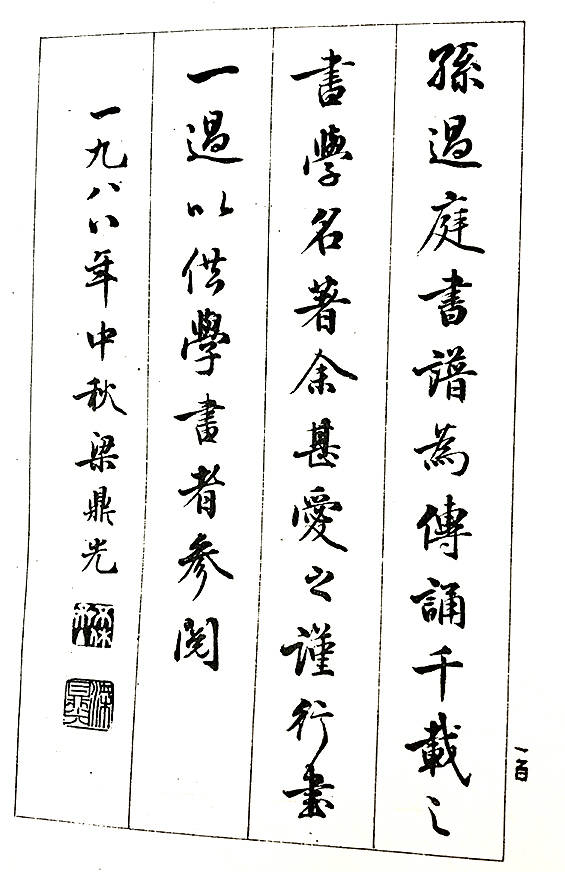 孫過庭書譜為傳誦千載之
書學名著余甚愛之謹行書
一過以供學書者參閱
一九八八年中秋梁鼎光
一百